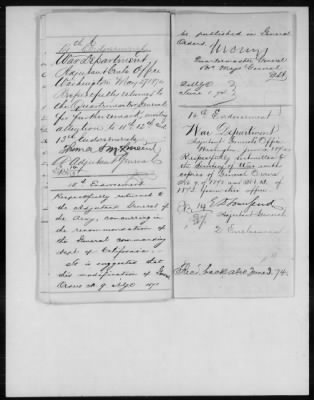 14th Endorsement
War Department,
Adjutant Genls Office
Washington May 29 1874
Respectfully returned to
the Quartermaster General
for further remark, inviting
attention to 11th 12th and
13th Endorsements
Thomas M. Vincent
Adjutant General
15th Endorsement
Respectfully returned to
the Adjutant General of
the Army, concurring in
the recommendation of
the General commanding
Dept of California.
It is suggested that
this modification of General
Orders No. 9 AGO 187
be published in General
Orders.
Quartermaster General
Bvt Major General
June 1
16th Endorsement
War Department
Adjutant General's Office
Washington June 1874
Respectfully submitted to
the Secretary of War with
copies of General Orders
of
1873 from this office
E D Townsend
Adjutant General
2 Enclosures
Rec'd back AGO June 3. 74.